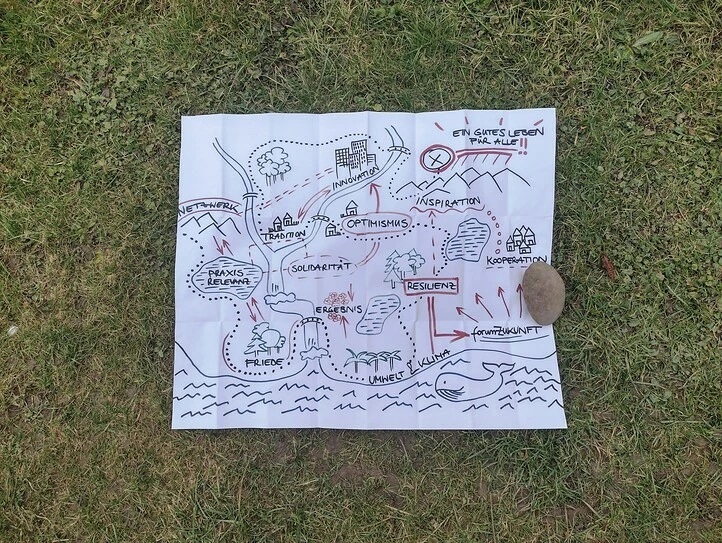 EIN GUTES LEBEN
FÜR ALLE!!
INNOVATION
NETZWERK
INSPIRATION
TRADITION
OPTIMISMUS
KOOPERATION
SOLIDARITÄT
PRAXIS
RELEVANZ
RESILIENZ
ERGEBNIS
forumZUKUNFT
FRIEDE
UMWELT & KLIMA